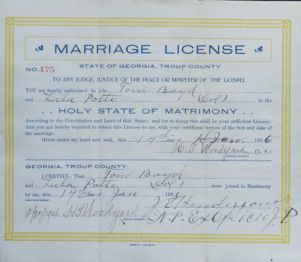 MARRIAGE LICENSE
STATE OF GEORGIA, TROUP COUNTY
NO. 175
TO ANY JUDGE, JUSTICE OF THE PEACE OR MINISTER OF THE GOSPEL
YOU are hereby authorized to join Tom Boyd
and Lula Potts (Col) , in the
. . HOLY STATE OF MATRIMONY . .
According to the Constitution and Laws of this State; and for so doing this shall be your sufficient License.
And you are hereby required to return this License to me, with your certificate hereon of the fact and date
of the marriage.
Given under my hand and seal, this 17th day of Jan 1906
(L. S.)
GEORGIA, TROUP COUNTY.
I CERTIFY, That Tom Boyd
and Lula Potts (Col) were joined in Matrimony
by me, this 17th day of Jan 190
J E Henderson
N. P. Ex Oficio J. P.